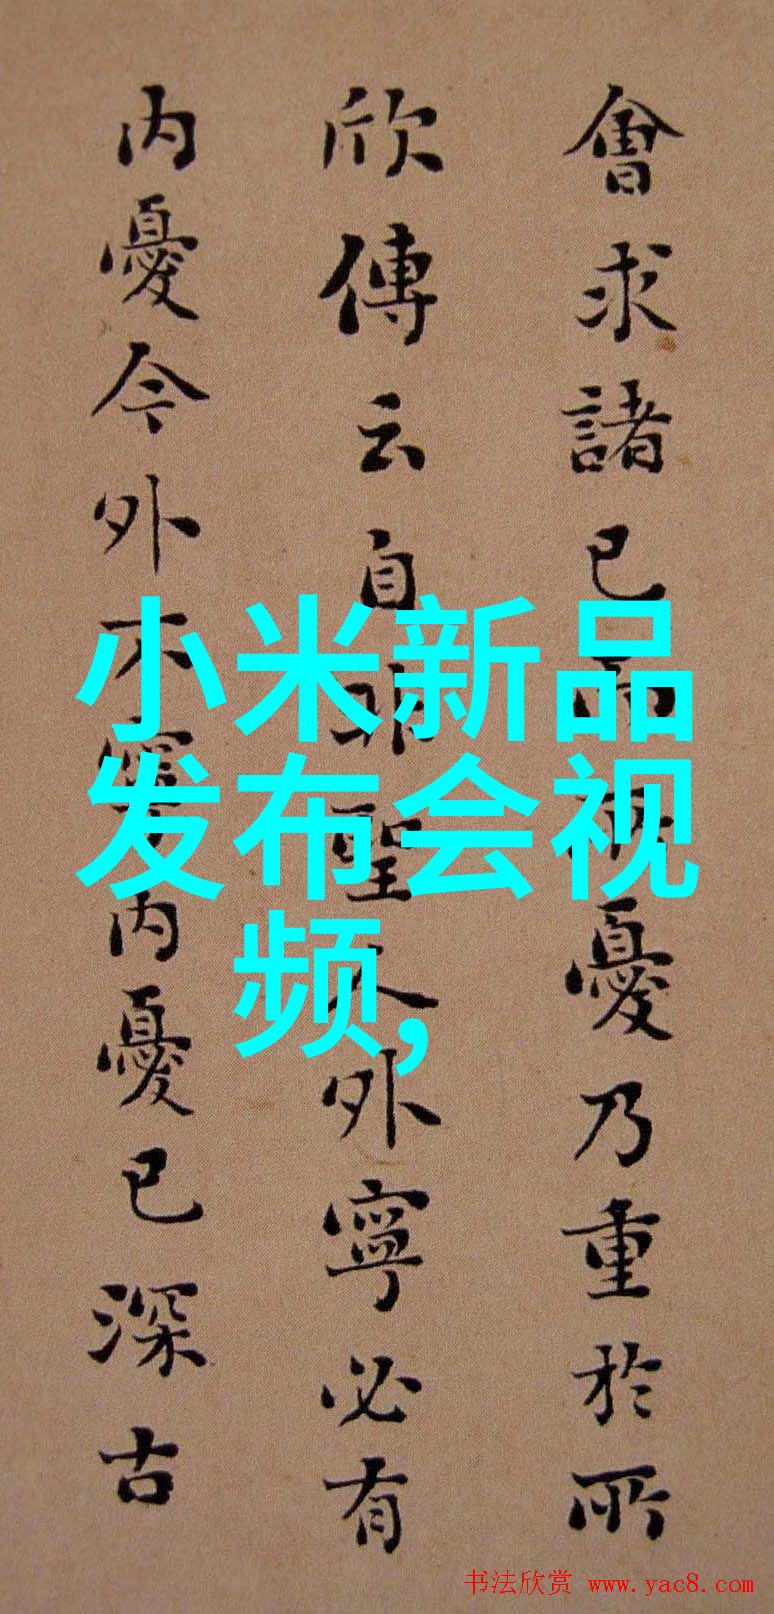 會求諸己而所憂乃重於所
欣傳云自非聖人外寧必有
内憂今外不寧内憂已深古
小米新品
发布会视
频,
书法欣赏 www.yac8.com